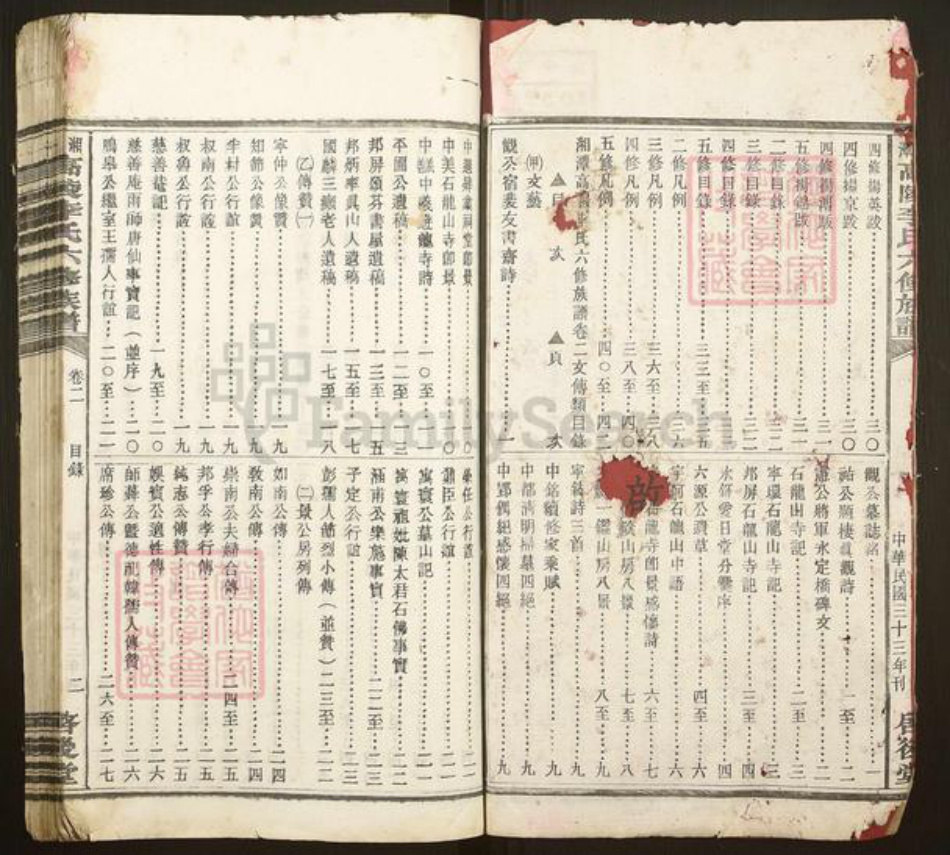 四修楊英跋 三〇
四修楊京跋 三〇
四修楊澍跋 三一
五修楊錦跋 三一
二修目錄 三二
三修目錄 三二
四修目錄
五修目錄 三三至三五
二修凡例 三六
三修凡例 三六至三八
四修凡例 三八至四〇
五修凡例 四〇至四一
湘潭高 氏六修族譜卷二文傳類目錄
▲目 次 ▲頁 次
(甲)文藝
觀公宿裴友書齋詩 一
觀公墓誌銘 一
祐公題棲真觀詩 一至二
憲公將軍永定橋碑文 二
石龍山寺記 二至三
寧環石龍山寺記 三
邦屏石龍山寺記 三至四
永錫愛日堂分爨序 四
六源公調草 四至六
寧 石龍山中語 六
龍寺即景感懷詩 六至七
山房八景 七至八
鑑山房八景 八至九
寧 詩三首 九
中銘續修家乘賦 九
中都清明掃墓四絕 九
中鄧偶紀感懷四絕 九
中美石龍山寺即景 一〇
中 中 遊龍寺時 一〇至一一
平圃公遺稿 一二至一三
邦屏頌芬書屋遺稿 一三至一五
邦炳奉真山人遺稿 一五至一七
國麟三癡老人遺稿 一七至一八
(乙)傳贊(一)
寧仲公像贊 一九
如節公像贊 一九
季村公行誼 一九
叔南公行誼 一九
叔魯公行誼 一九
慈善菴記 一九至二〇
慈善庵雨師唐仙事實記(並序) 二〇
鵬皋公繼室王孺人行誼 二〇至二一
樂任公行誼 二一
鼐臣公行誼 二一
寓賓公墓山記 二一
寓賓 妣陳太君石佛事實 二一
涵南公樂 事實 二二至二二
子定公行誼 二三
彭孺人節烈小傳(並贊) 二三至二三
(二)景公房列傳
如南公傳 二四
敎南公傳 二四
崇南公夫婦合傳 二四至二五
邦孚公孝行傳 二五
純志公傳贊 二五
娛賓公適性傳 二六
師彝公暨德配韓孺人傳贊 二六
席珍公傳 二六至二七
湘 高陵李氏六修族譜
卷二
目錄
二
中華民國三十三年刊
啓後堂
FamilySearch